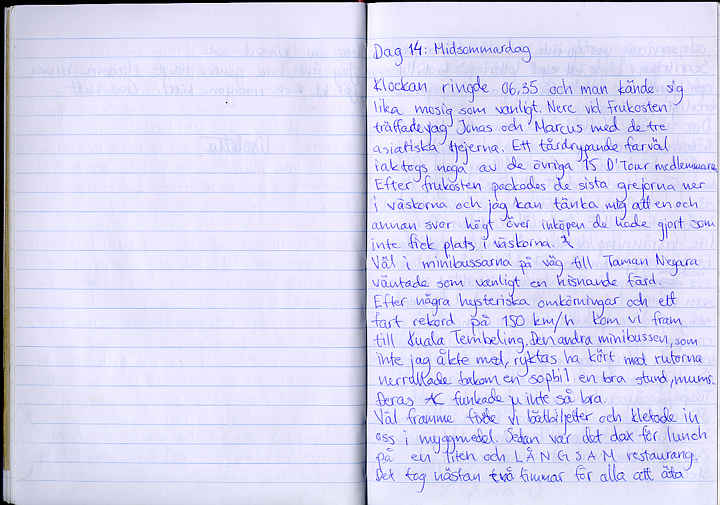 Dag 14: Midsommardag
Klockan ringde 06,35 och man kände sig
lika mosig som vanligt. Nere vid frukosten
träffade jag Jonas och Marcus med de tre
asiatiska tjejerna. Ett tårdrypande farväl
iaktogs noga av de övriga 15 D'Tour medlemmarna
Efter frukosten packades de sista grejorna ner
i väskorna och jag kan tänka mig att en och
annan svor högt över inköpen de hade gjort som
inte fick plats i väskorna.
Väl i minibussarna på väg till Taman Negara
väntade som vanligt en hisnande färd.
Efter några hysteriska omkörningar och ett
fart rekord på 150 km/h kom vi fram
till Kuala Tembeling. Den andra minibussen, som
inte jag åkte med, ryktas ha kört med rutorna
nerrullade bakom en sopbil en bra stund, mums.
Deras AC funkade ju inte så bra.
Väl framme fixade vi båtbiljetter och kletade in
oss i myggmedel. Sedan var det dax för lunch
på en liten och LÅNGSAM restaurang.
Det tog nästan två timmar för alla att äta